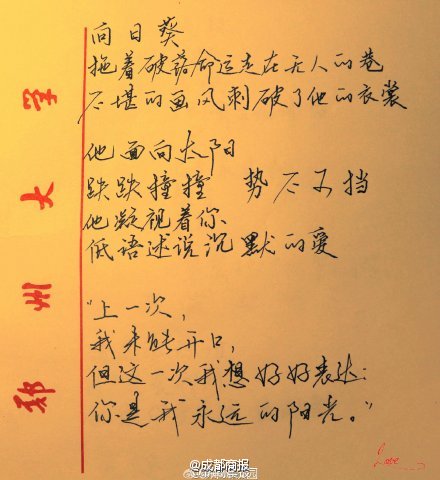 向日葵
拖着破落命运走在无人的巷
不堪的画风刺破了他的衣裳
他面向太阳
跌跌撞撞 势不可挡
他凝视着你
低语述说沉默的爱
“上一次，
我未能开口，
但这一次我想好好表达：
你是我永远的阳光。”
郑州大学
Love
@成都商报